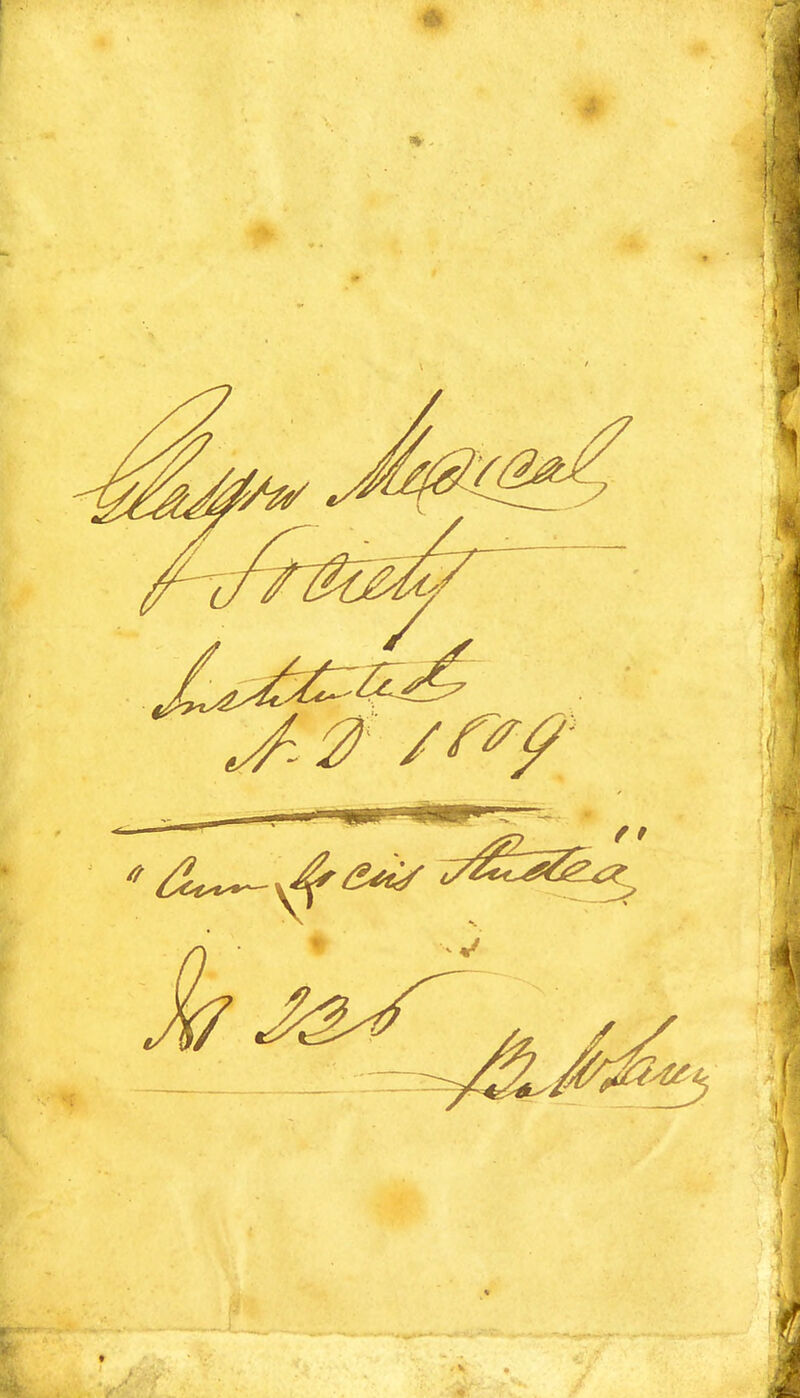 Glasgow Medical
Society
Instituted
A. D 1809
"Cum Sociis Studea"
No 236
B. W